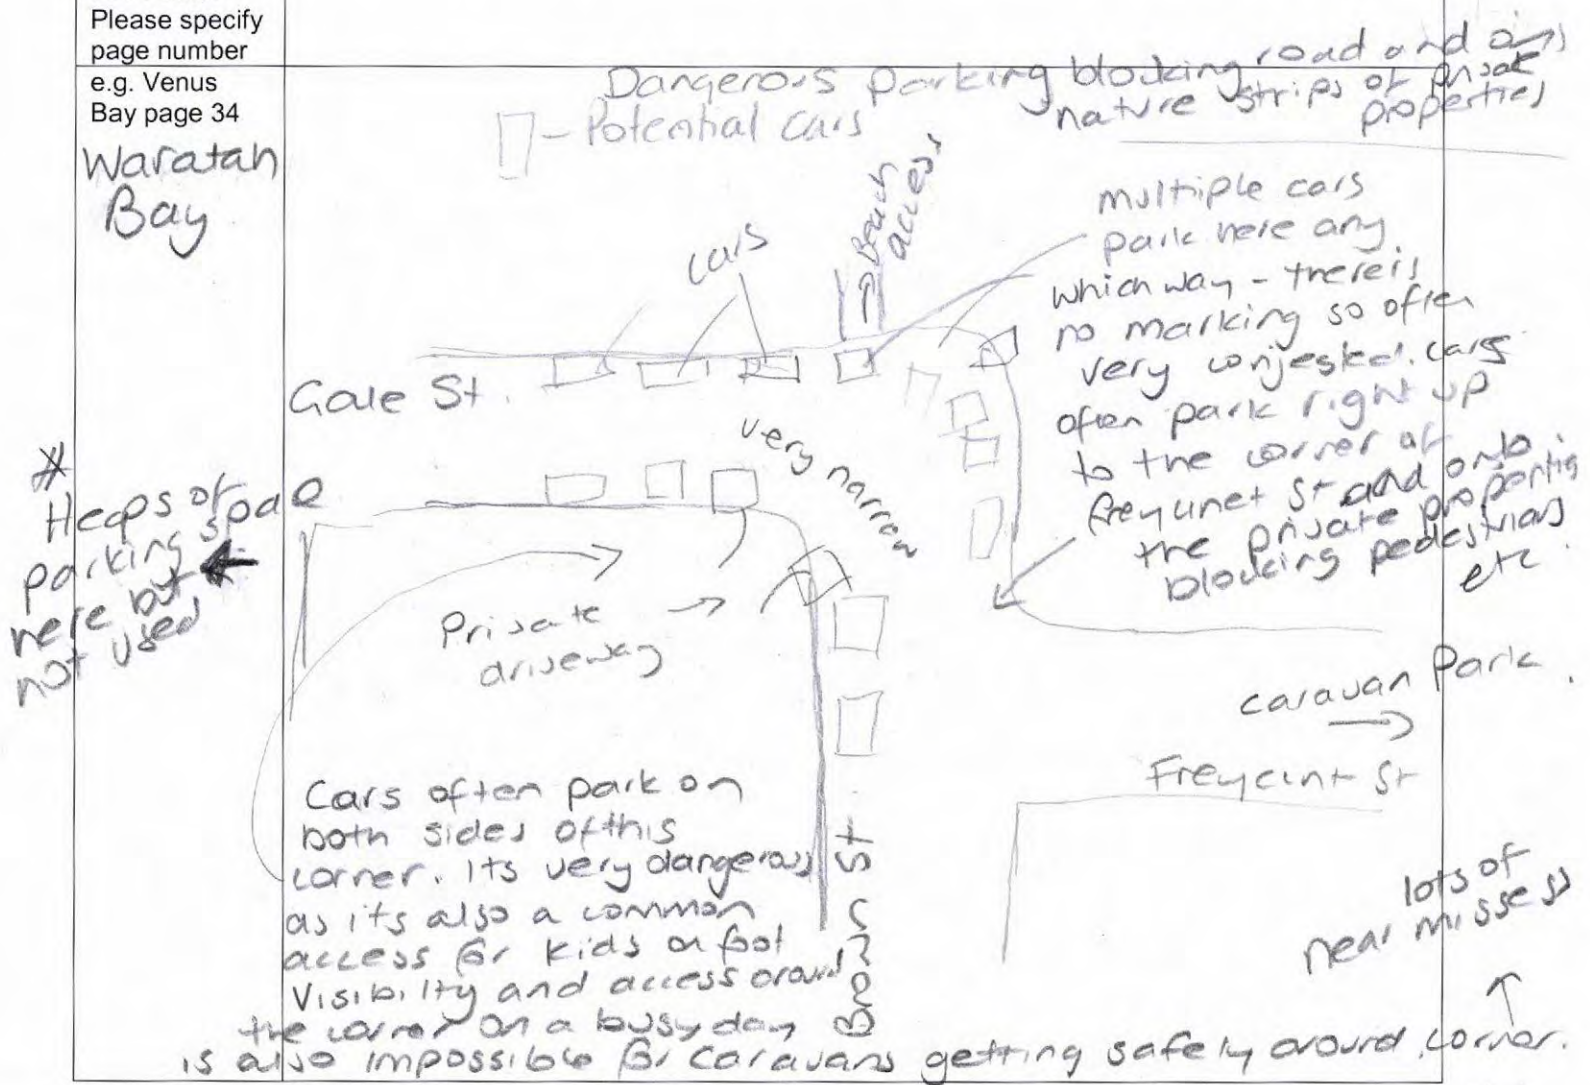 Please specify
page number
e.g. Venus
Bay page 34
Waratah
Bay
Dangerous parking blocking road and
nature strips of private
properties
- Potential cars
Beach
access
cars
multiple cars
park here any
which way - there is
no marking so often
very conjested. cars
often park right up
to the corner of
freycinet St and onto
the private properties
blocking pedestrians
etc.
Gale St.
very narrow
#
Heaps of
parking space
here but
not used
Private
driveway
caravan Park
Freycint St
Cars often park on
both sides of this
corner. Its very dangerous
as its also a common
access for kids on foot
Visibilty and access around
the corner on a busy day
is also impossible for caravans getting safely around corner.
St
lots of
near missess